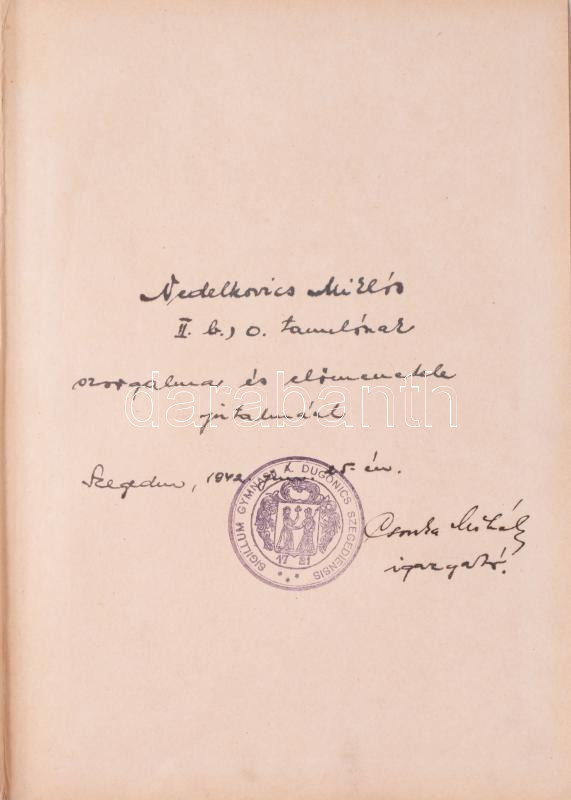 Nedelkovics Miklós
II. b.) o. tanulónak
szorgalma és előmenetele
jutalmául
darabanth
Szegeden, 1942. jun. 25-én.
SIGILLUM GYMNASII A. DUGONICS SZEGEDIENSIS
Csonka Mihály
igazgató.